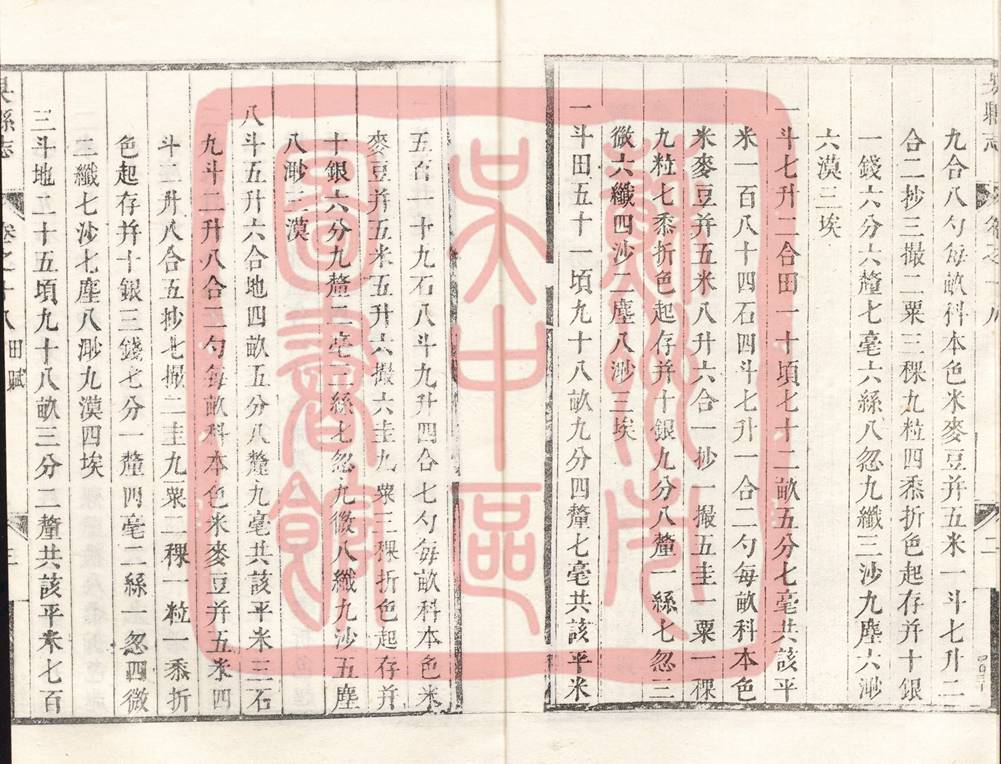 九合八勺每畝科本色米麥豆幷五米一斗七升二
合二抄三撮二粟三稞九粒四黍折色起存幷十銀
一錢六分六釐七毫六絲八忽九纖三沙九塵六渺
六漠三埃
一斗七升二合田一十頃七十二畝五分七毫共該平
米一百八十四石四斗七升一合二勺每畝科本色
米麥豆幷五米八升六合一抄一撮五圭一粟一稞
九粒七黍折色起存幷十銀九分八釐一絲七忽三
微六纖四沙二塵八渺三埃
一斗田五十一頃九十八畝九分四釐七毫共該平米
五百一十九石八斗九升四合七勺每畝科本色米
麥豆幷五米五升六撮六圭九粟三稞折色起存幷
十銀六分九釐二毫二絲七忽九微八纖九沙五塵
八渺三漠
八斗五升六合地四畝五分八釐九毫共該平米三石
九斗二升八合二勺每畝科本色米麥豆幷五米四
斗二升八合五抄七撮二圭九粟二稞一粒一黍折
色起存幷十銀三錢七分一釐四毫二絲一忽四微
二纖七沙七塵八渺九漠四埃
三斗地二十五頃九十八畝三分二釐共該平米七百
吳縣志 卷之十八 田賦 三
吳縣志 卷之十八 二
蘇州市
吳中區
圖書館